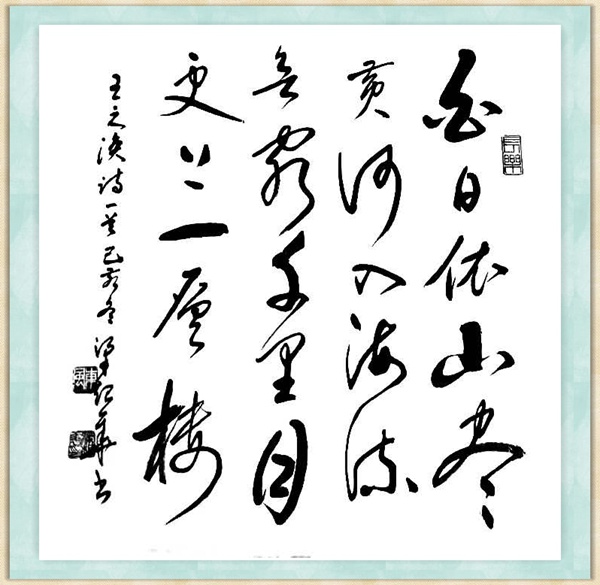 長樂
白日依山尽
黄河入海流
欲穷千里目
更上一层楼
王之涣诗一首己亥冬梁
书